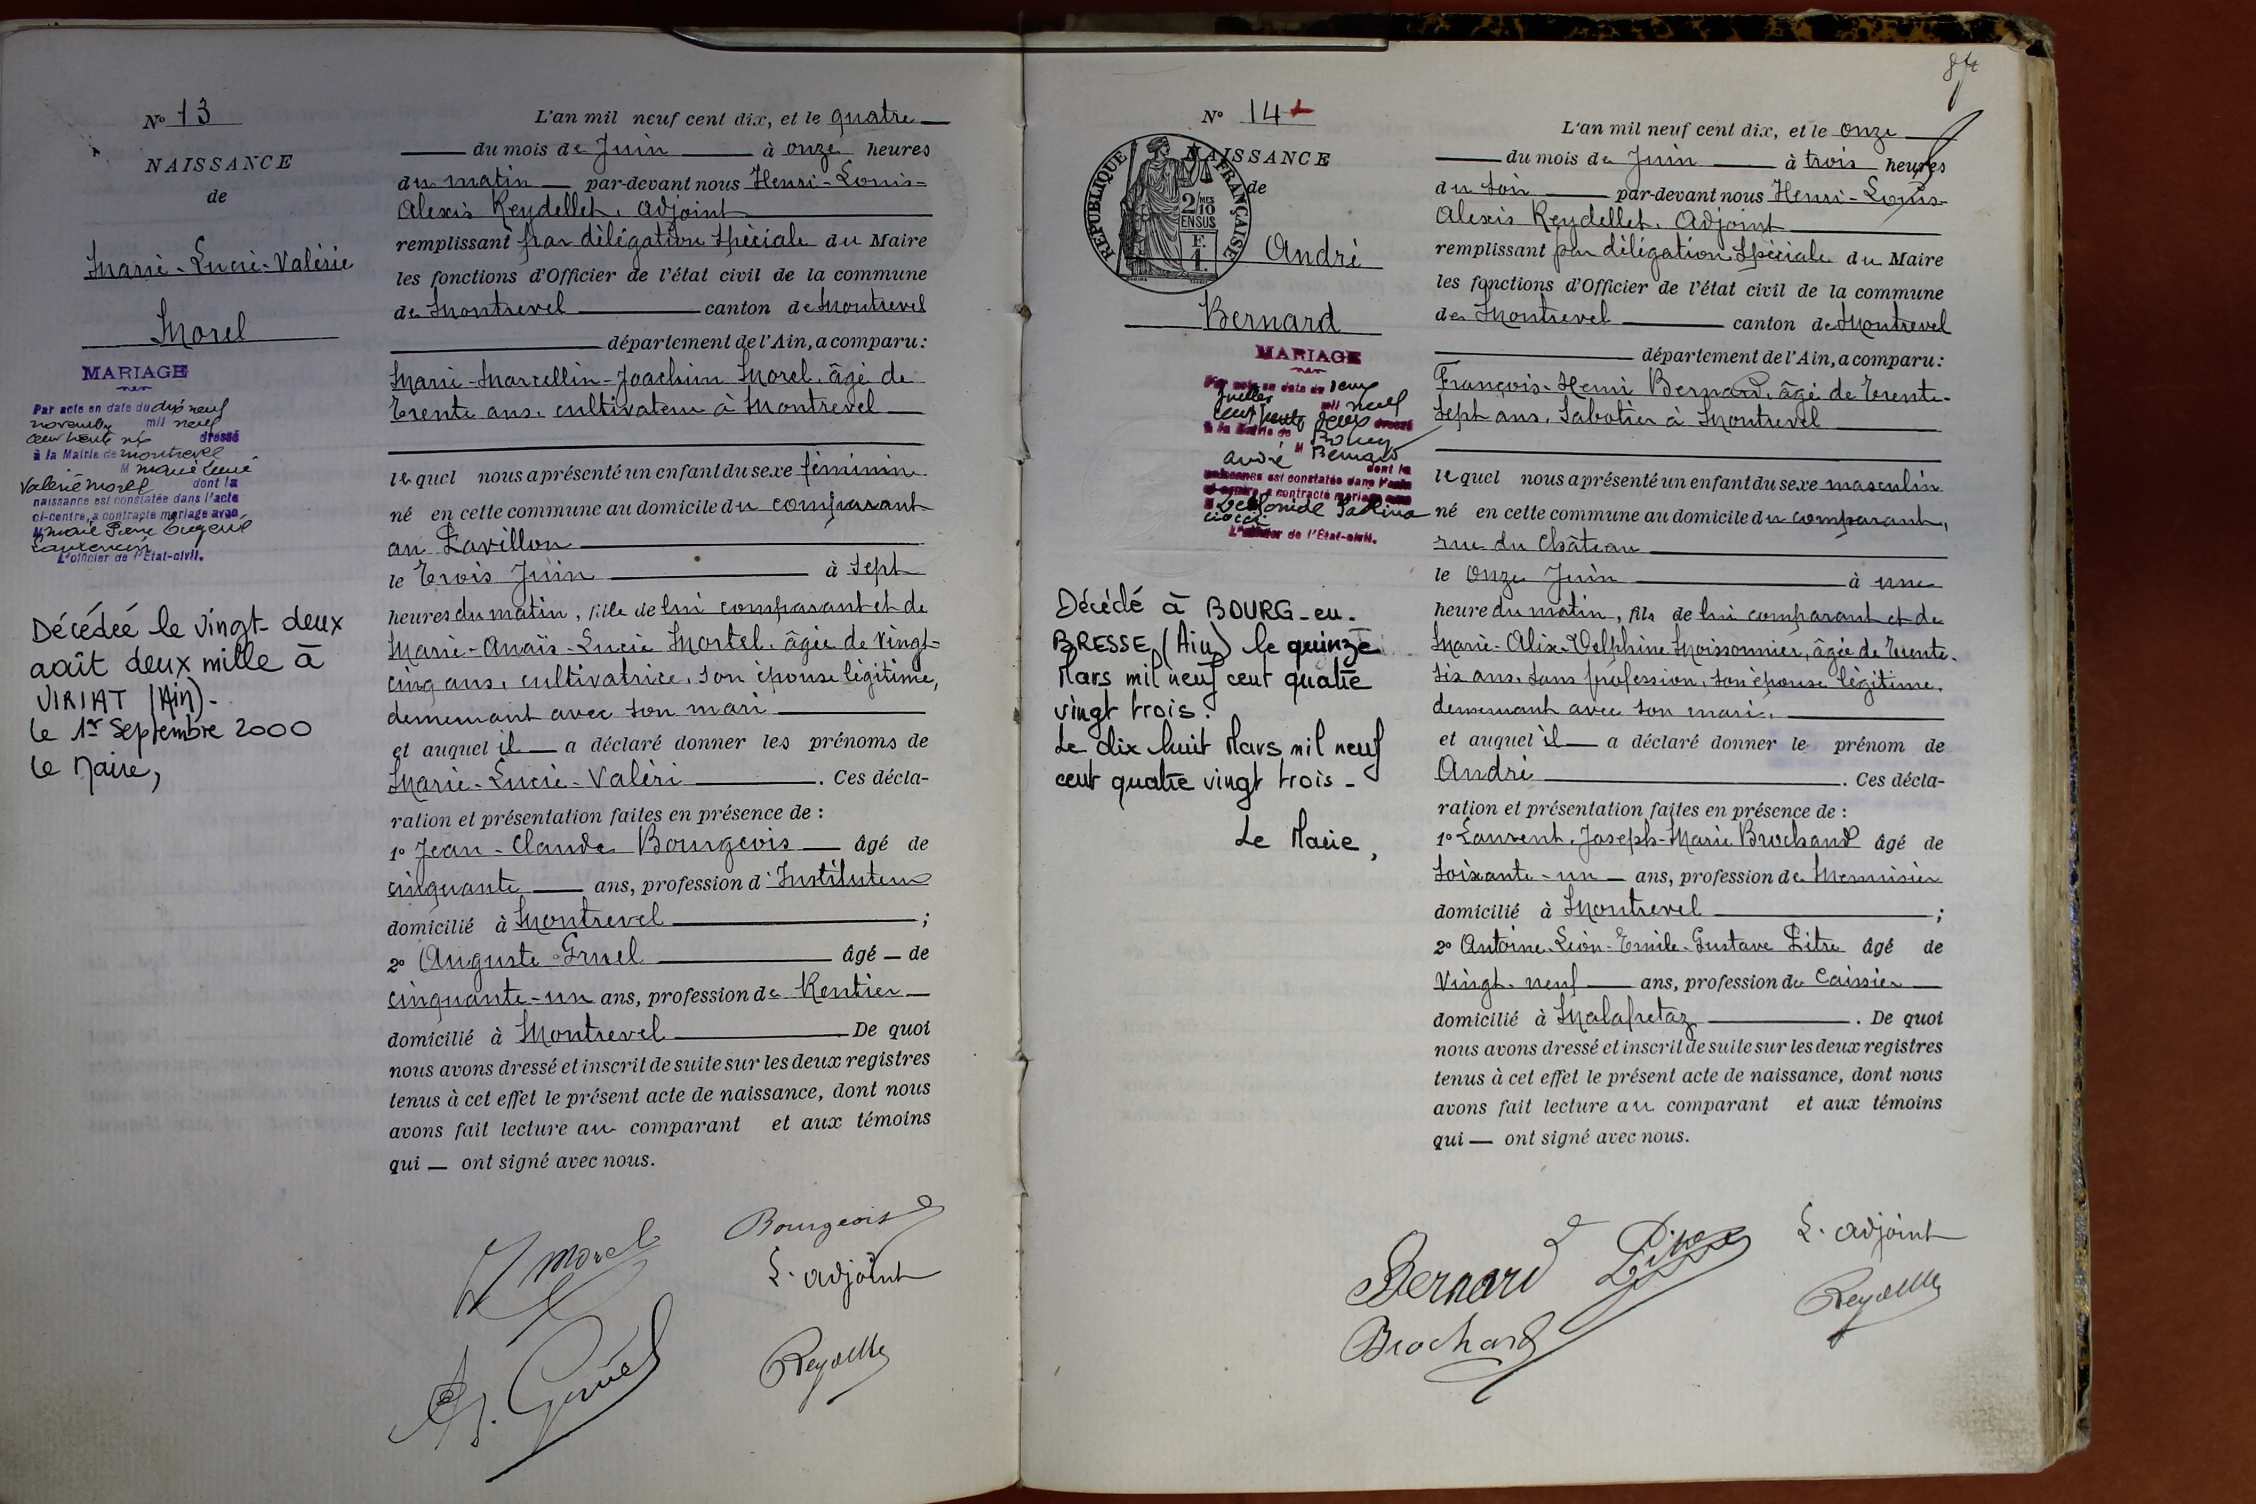 Nº 13
NAISSANCE
de
Marie-Lucie-Valérie
Morel
MARIAGE
Par acte en date du dix neuf
novembre mil neuf
cent trente dressé
à la Mairie de Montrevel
M Marie Lucie
Valérie Morel dont la
naissance est constatée dans l'acte
ci-contre, a contracté mariage avec
M Marie Pierre Eugène
Laurencin
L'officier de l'Etat-civil.
Décédée le vingt-deux
août deux mille à
VIRIAT (Ain)-
le 1er Septembre 2000
le Maire,
L'an mil neuf cent dix, et le quatre
du mois de Juin à onze heures
du matin par-devant nous Henri-Louis-
Alexis Reydellet, adjoint
remplissant par délégation spéciale du Maire
les fonctions d'Officier de l'état civil de la commune
de Montrevel canton de Montrevel
département de l'Ain, a comparu:
Marie-Marcellin-Joachim Morel, âgé de
trente ans, cultivateur à Montrevel
lequel nous a présenté un enfant du sexe féminin
né en cette commune au domicile du comparant
au Pavillon
le trois Juin à sept
heures du matin, fille de lui comparant et de
Marie-Anaïs-Lucie Mortel, âgée de vingt-
cinq ans, cultivatrice, son épouse légitime,
demeurant avec son mari
et auquel il a déclaré donner les prénoms de
Marie-Lucie-Valéri . Ces décla-
ration et présentation faites en présence de :
1º Jean-Claude Bourgeois âgé de
cinquante ans, profession d'Instituteur
domicilié à Montrevel ;
2º Auguste Gruel âgé de
cinquante-un ans, profession de Rentier
domicilié à Montrevel De quoi
nous avons dressé et inscrit de suite sur les deux registres
tenus à cet effet le présent acte de naissance, dont nous
avons fait lecture au comparant et aux témoins
qui ont signé avec nous.
Morel
Bourgeois
L'adjoint
A. Gruel
Reydellet
84
Nº 14
NAISSANCE
de
RÉPUBLIQUE FRANÇAISE
2/10 MES
EN SUS
F.
1.
André
Bernard
MARIAGE
Par acte en date du deux
Juillet mil neuf
cent trente deux dressé
à la Mairie de Bohas
M
André Bernard
dont la
naissance est constatée dans l'acte
ci-contre, a contracté mariage avec
L'officier de l'Etat-civil.
Décédé à BOURG-en-
BRESSE (Ain) le quinze
Mars mil neuf cent quatre
vingt trois.
Le dix huit Mars mil neuf
cent quatre vingt trois -
Le Maire,
L'an mil neuf cent dix, et le onze
du mois de Juin à trois heures
du soir par-devant nous Henri-Louis-
Alexis Reydellet, Adjoint
remplissant par délégation spéciale du Maire
les fonctions d'Officier de l'état civil de la commune
de Montrevel canton de Montrevel
département de l'Ain, a comparu:
François-Henri Bernard, âgé de trente-
sept ans, sabotier à Montrevel
lequel nous a présenté un enfant du sexe masculin
né en cette commune au domicile du comparant,
rue du Château
le onze Juin à une
heure du matin, fils de lui comparant et de
Marie-Alix-Delphine Moissonnier, âgée de trente-
six ans, sans profession, son épouse légitime,
demeurant avec son mari,
et auquel il a déclaré donner le prénom de
André . Ces décla-
ration et présentation faites en présence de :
1º Laurent-Joseph-Marie Brochand âgé de
soixante-un ans, profession de Menuisier
domicilié à Montrevel ;
2º Antoine-Léon-Emile-Gustave Pitre âgé de
vingt-neuf ans, profession de Caissier
domicilié à Malafretaz . De quoi
nous avons dressé et inscrit de suite sur les deux registres
tenus à cet effet le présent acte de naissance, dont nous
avons fait lecture au comparant et aux témoins
qui ont signé avec nous.
Bernard
Pitre
L'adjoint
Brochand
Reydellet